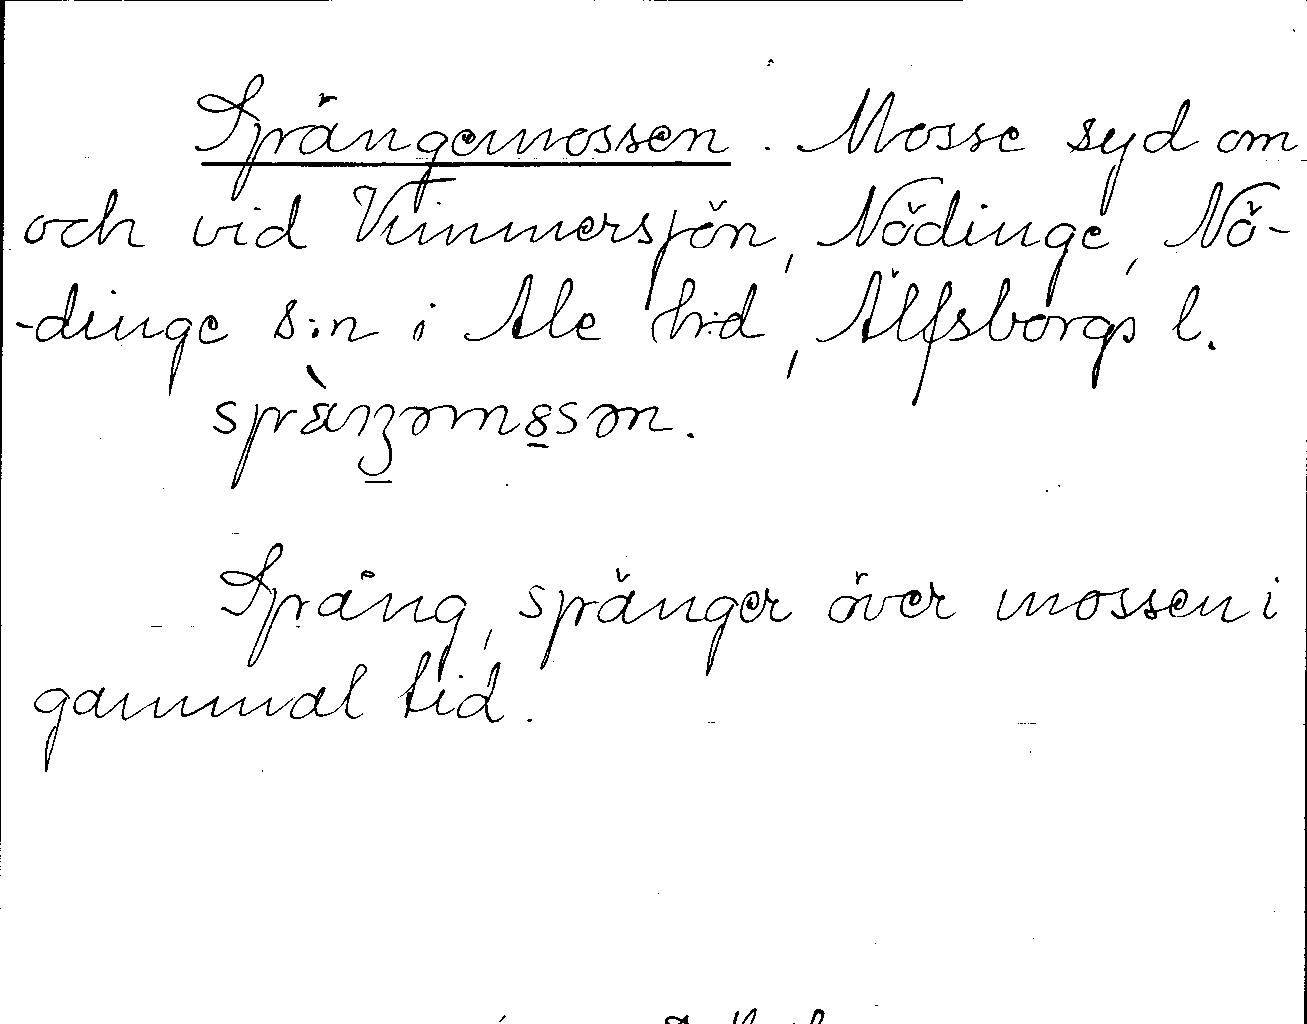 Sprängemossen. Mosse syd om
och vid Vimmersjön, Nödinge, Nö-
-dinge s:n i Ale h:d, Älfsborgs l.
spràŋəmo̲sən.
Spång, spänger över mossen i
gammal tid.